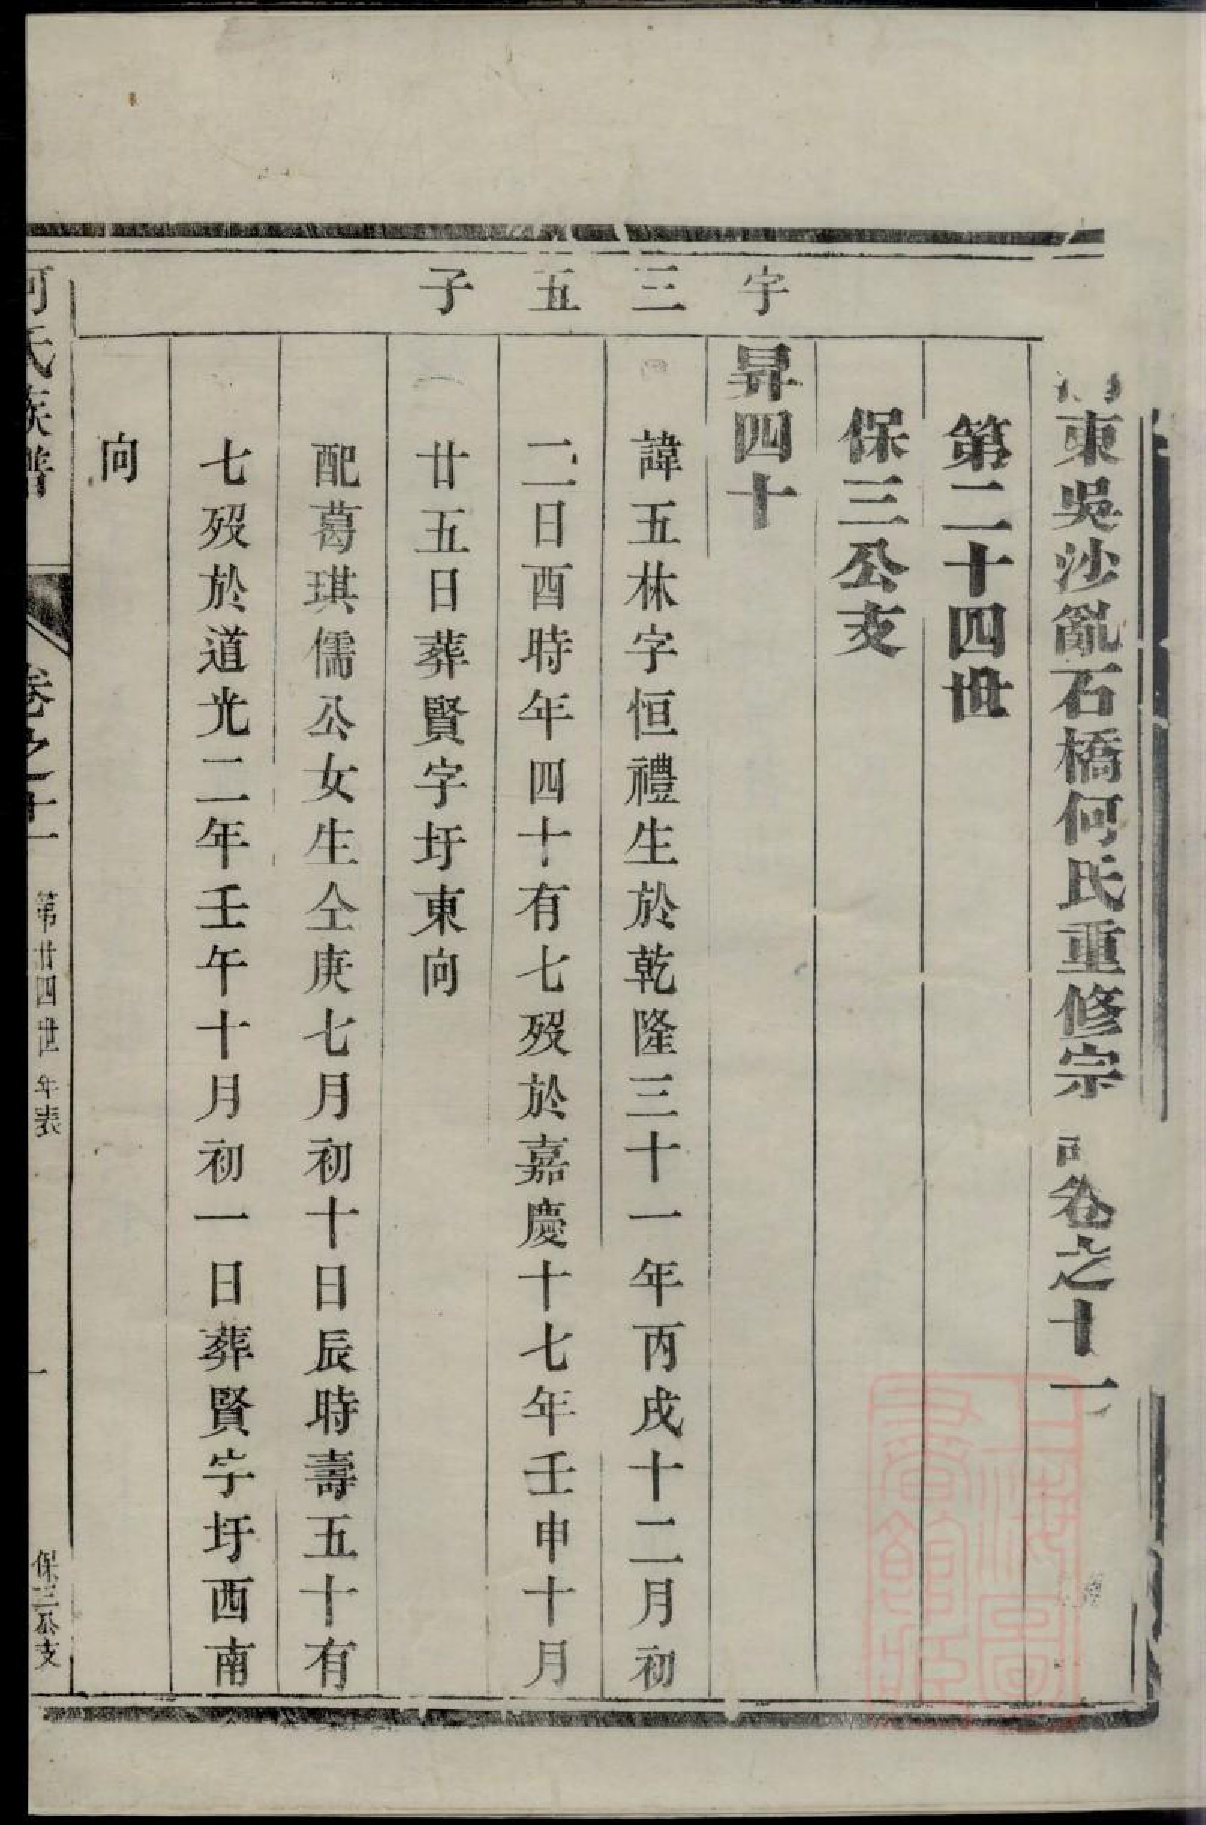 東吳沙亂石橋何氏重修宗 卷之十一
第二十四世
保三公支
宇三五子
昇四十
諱五林字恒禮生於乾隆三十一年丙戌十二月初
二日酉時年四十有七歿於嘉慶十七年壬申十月
廿五日葬賢字圩東向
配葛琪儒公女生仝庚七月初十日辰時壽五十有
七歿於道光二年壬午十月初一日葬賢字圩西南
向
何氏族譜 卷之十一 第廿四世年表 一 保三公支
上海圖書館藏